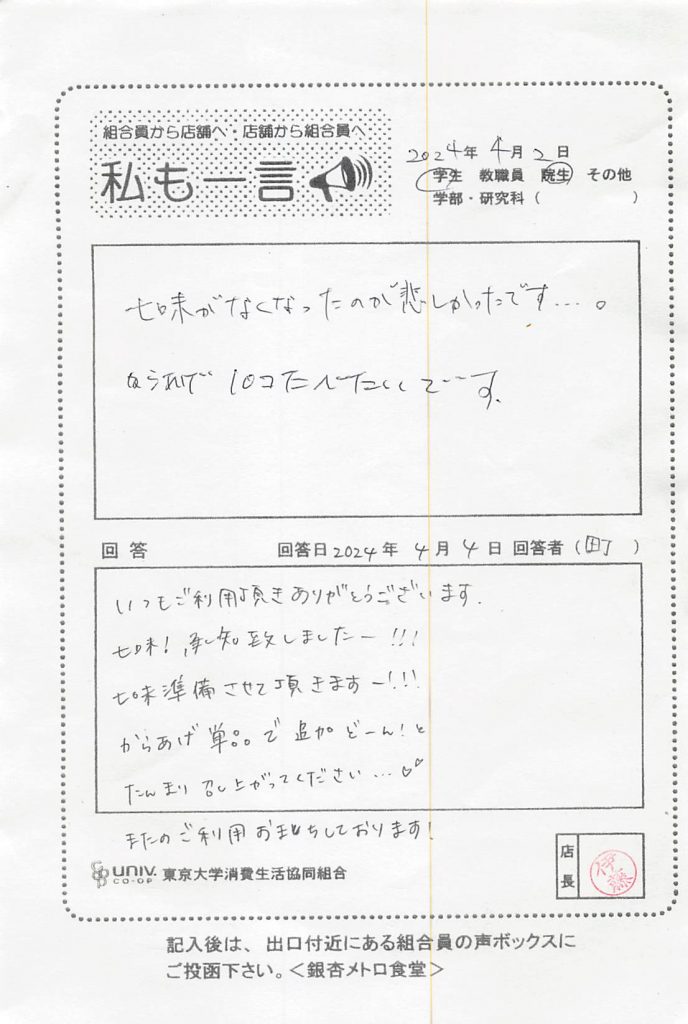 組合員から店舗へ・店舗から組合員へ
私も一言
2024年 4月 2日
学生 教職員 院生 その他
学部・研究科( )
七味がなくなったのが悲しかったです....。
からあげ 10コたべたいでーす。
回答 回答日2024年 4月 4日 回答者(町 )
いつもご利用頂きありがとうございます.
七味!承知致しましたー!!!
七味準備させて頂きますー!!!
からあげ 単品で 追加 どーん!と
たんまり 召し上がってください...♡♡
またのご利用お待ちしております!
UNIV. CO-OP 東京大学消費生活協同組合
店長
伊藤
記入後は、出口付近にある組合員の声ボックスに
ご投函下さい。<銀杏メトロ食堂>